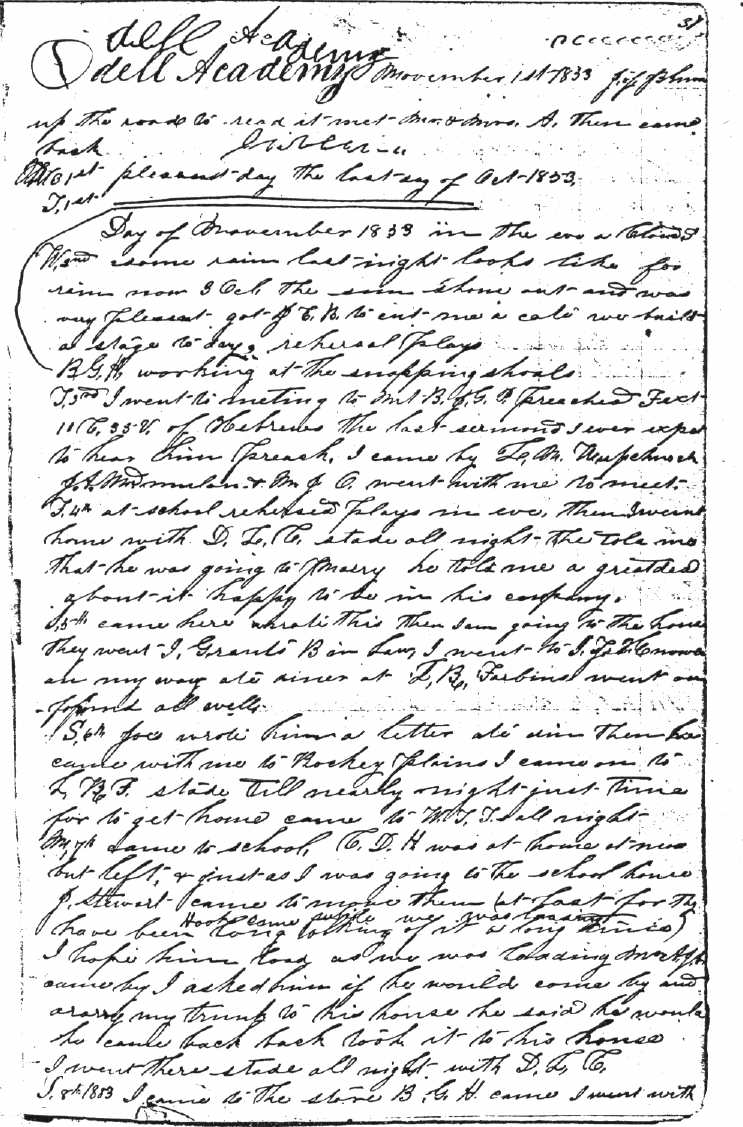 31
dell Academy
Odell Academy November 1st 1853
up the road to read it met Mr & Mrs. A. then came
back
1st pleasant day the last day of Oct 1853,
T, 1st
Day of November 1853 in the eve a Cloud
W, 2nd some rain last night looks like for
rain now 3 Oclk the sun shone out and was
very pleasent got J E, B, to cut me a we built
a stage to day, rehersal plays
B G, H, working at the snapping shoals
T, 3rd I went to meting to Mt B, J, G, P, preached Text
11 C, 35 V, of Hebrews the last sermond I ever expect
to hear him preach, I came by
J, A, & M J C. went with me to meet.
F, 4th at school rehersed plays in eve, then I went
home with D. L, C, stade all night he told me
that he was going to Marry he told me a great deal
about it happy to be in his company.
S, 5th came here wrote this then I am going to the house
they went I, Grants B in Law, I went to
on my way ate diner at L, B, Farbins went on
found all well
S, 6th Joe wrote him a letter ate din then he
came with me to Rockey Plains I came on to
L, B, F. stade till nearly night just time
for to get home came to W, T, T,s all night
M, 7th came to school, C. D. H was at home at noo
but left, & just as I was going to the school house
J, Stewart came to move them (at last for they
Hook came while we was loading
have been long looking of it a long time)
I hope him load as we was loading
came by I asked him if he would come by and
carry my trunk to his house he said he would
he came back back took it to his house
I went there stade all night with D, L, C,
T. 8th 1853 I came to the store B, G. H. came I went with